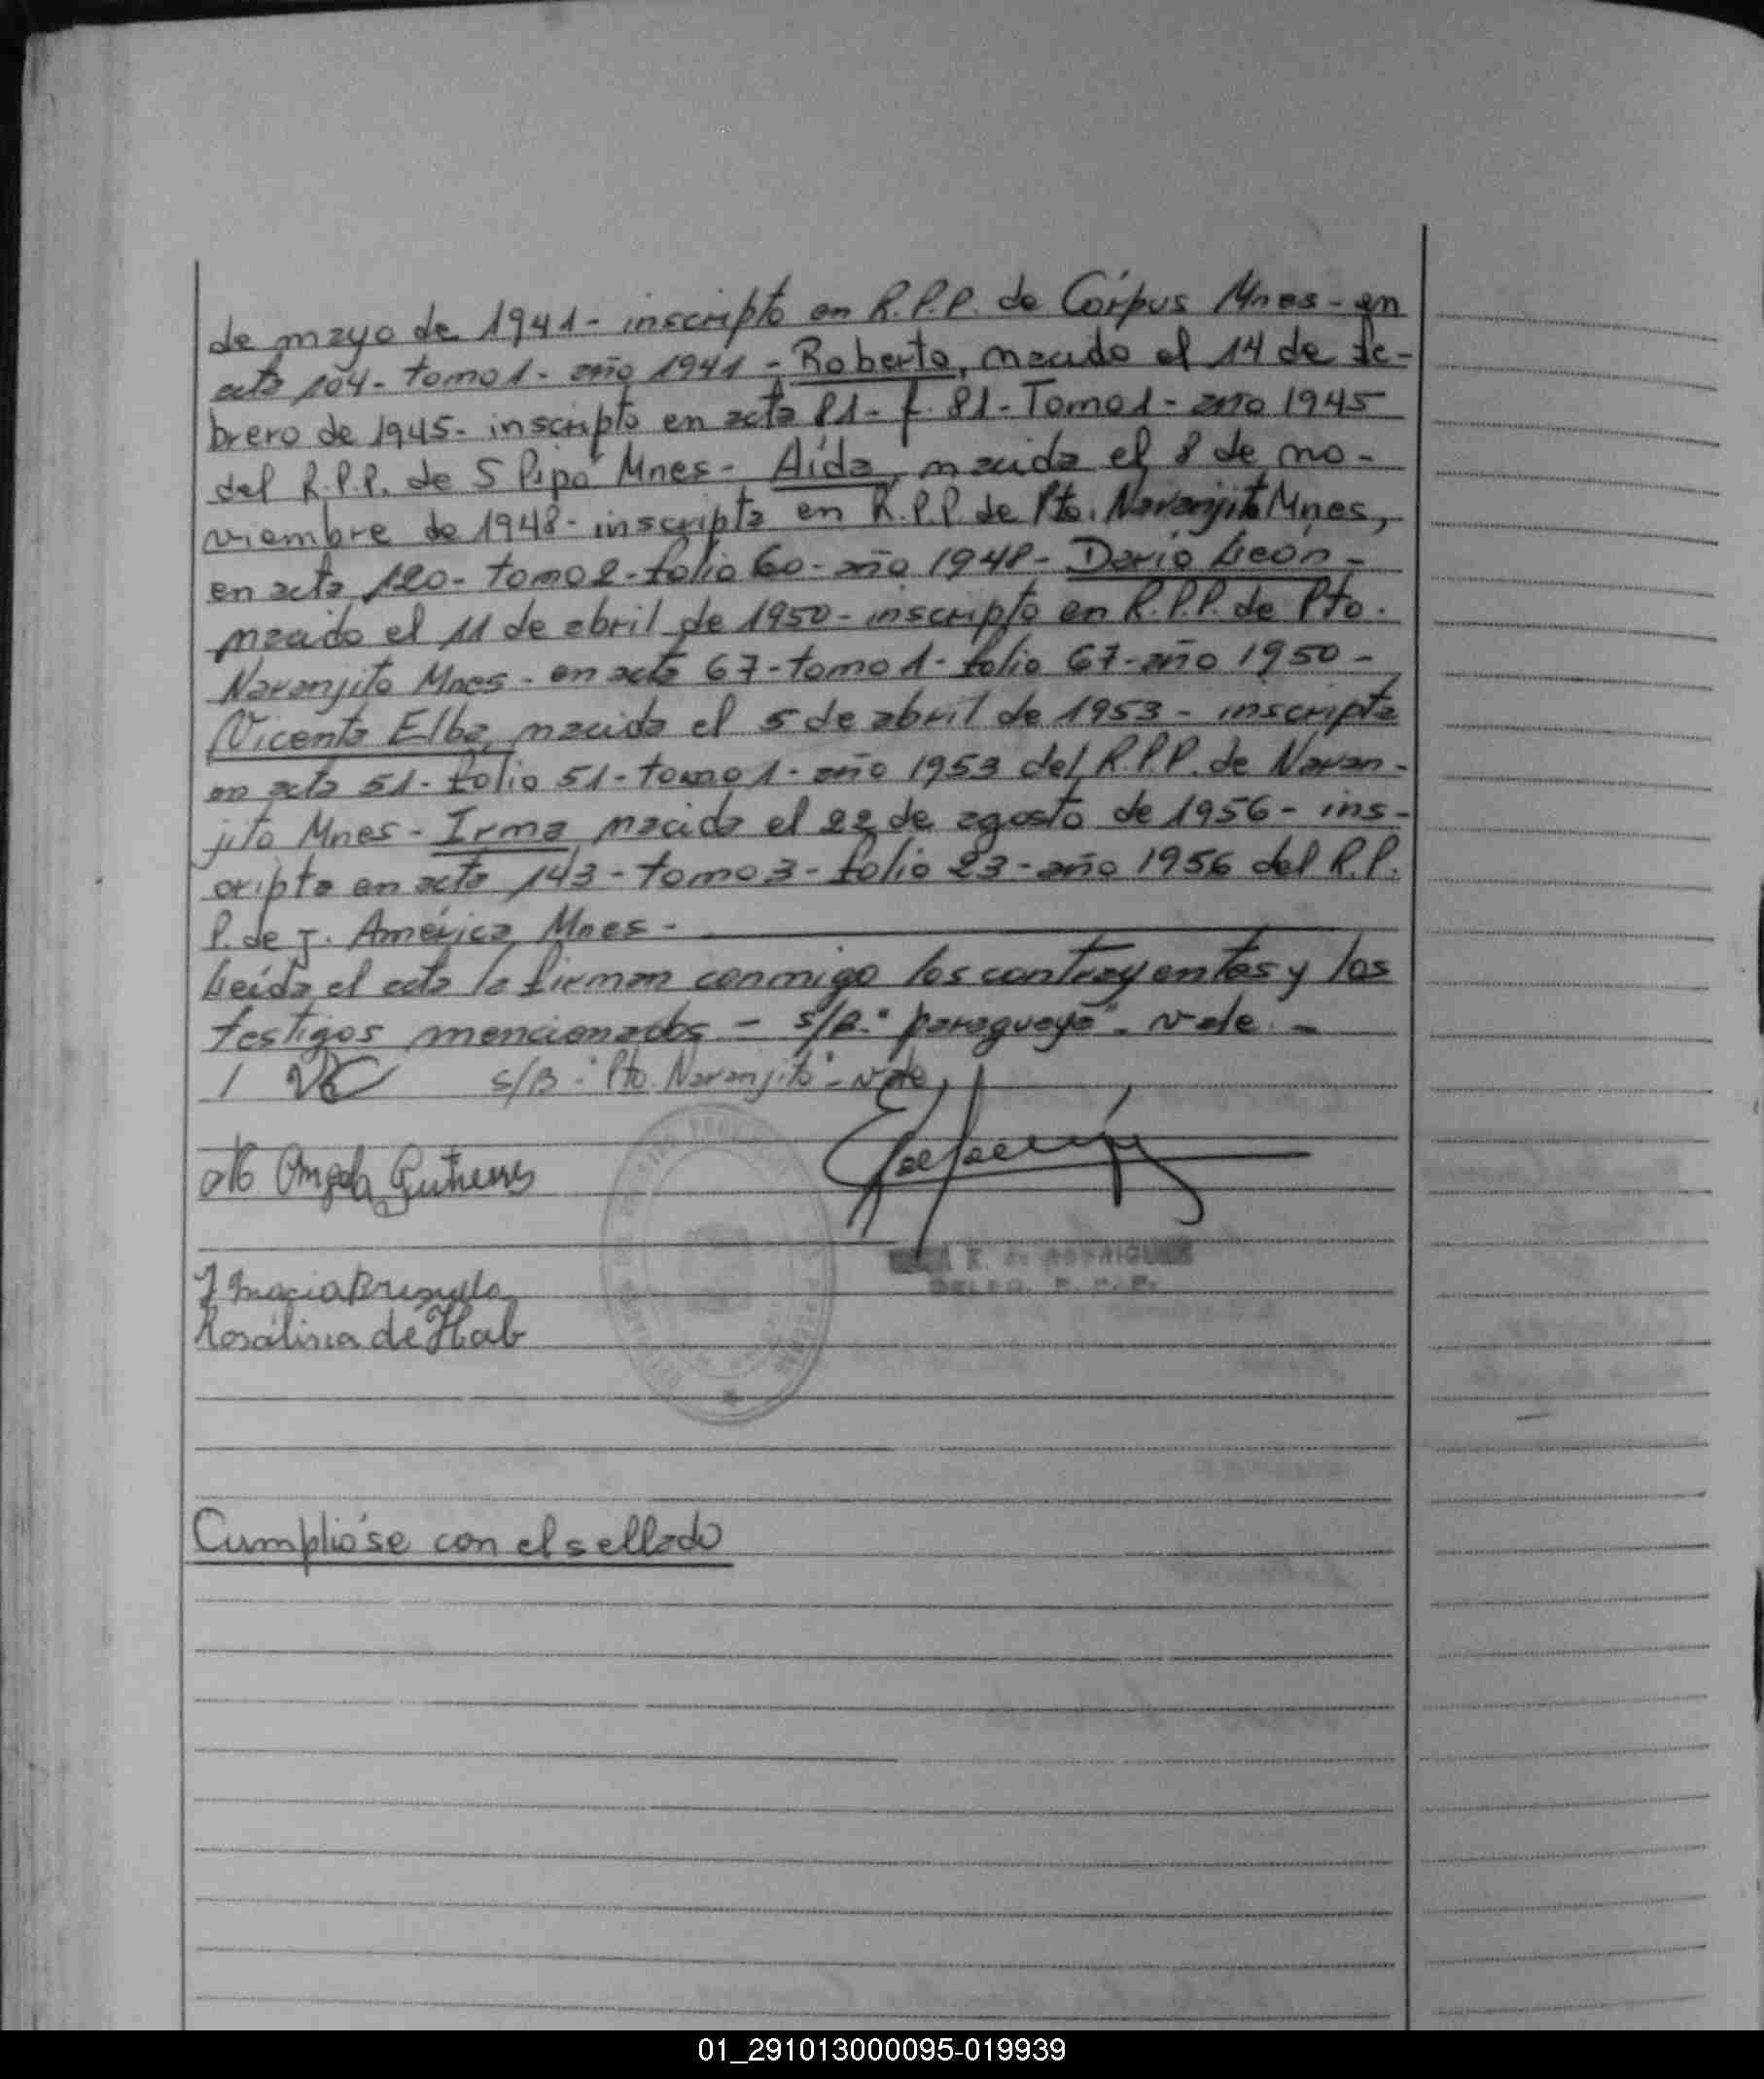 de mayo de 1941- inscripto en R.P.P. de Córpus Mnes- en
acta 104- tomo 1- año 1941 - Roberto, nacido el 14 de fe-
brero de 1945- inscripto en acta 81- f. 81- Tomo 1- año 1945
del R.P.P. de S Pipó Mnes- Aída, nacida el 8 de no-
viembre de 1948- inscripta en R.P.P. de Pto. Naranjito Mnes,
en acta 120- tomo 2- folio 60- año 1948- Darío León-
nacido el 11 de abril de 1950- inscripto en R.P.P. de Pto.
Naranjito Mnes- en acta 67- tomo 1- folio 67- año 1950-
Vicenta Elba, nacida el 5 de abril de 1953- inscripta
en acta 51- folio 51- tomo 1- año 1953 del R.P.P. de Naran-
jito Mnes- Irma nacida el 22 de agosto de 1956- ins-
cripta en acta 143- tomo 3- folio 23- año 1956 del R.P.
P. de J. América Mnes-
Leída el acta la firman conmigo los contrayentes y los
testigos mencionados - s/B. "paraguaya"- vale -
s/B - "Pto. Naranjito"- vale
Angela
RODRIGUEZ
DELEG. R. P. P.
Rosalina de Hab
Cumplióse con el sellado
01_291013000095-019939